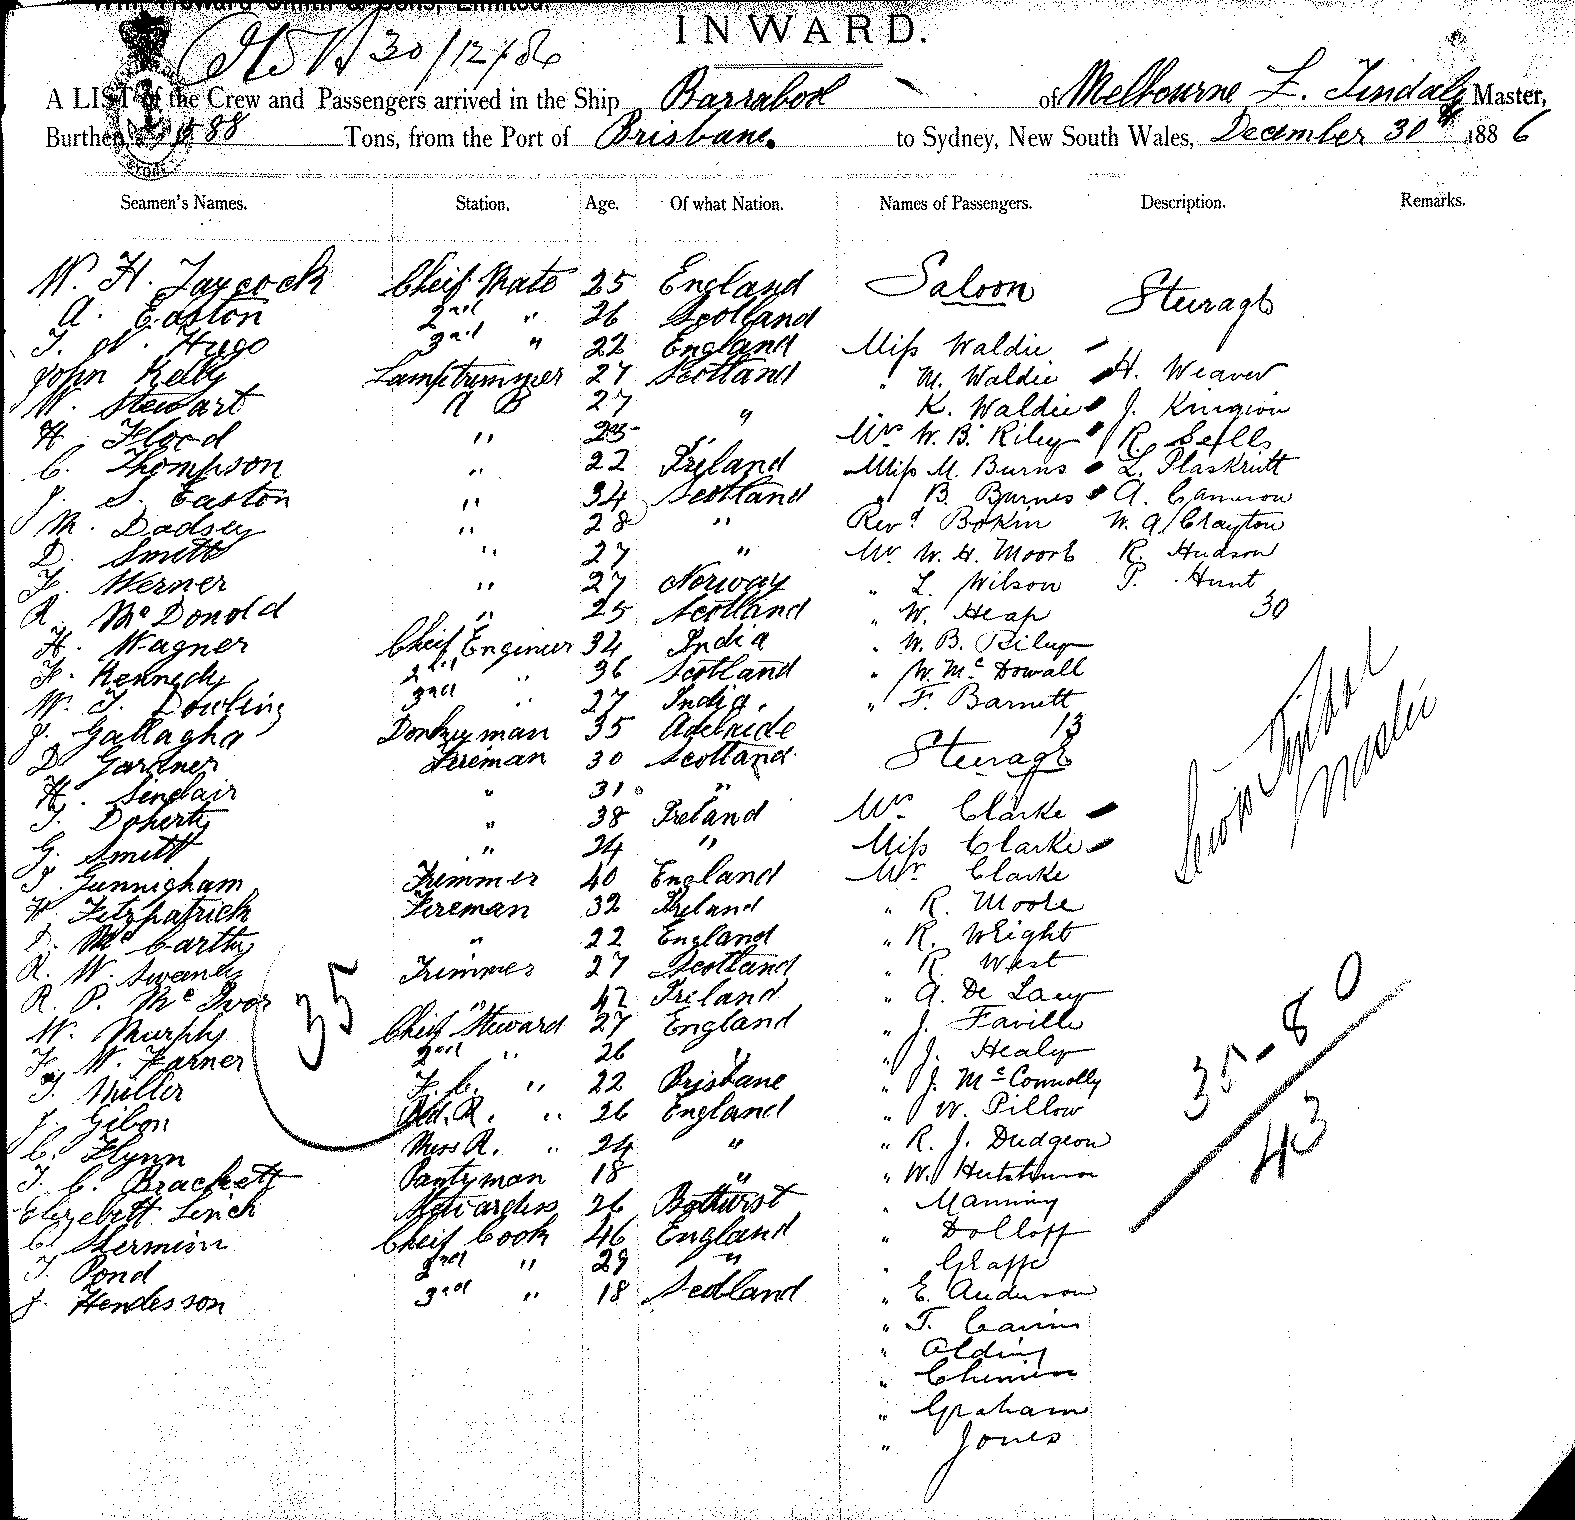 Wm. Howard Smith & Sons, Limited.
30/12/86
INWARD.
A LIST of the Crew and Passengers arrived in the Ship Barrabool of Melbourne L. Tindale Master,
Burthen 588 Tons, from the Port of Brisbane. to Sydney, New South Wales, December 30th 1886
Seamen's Names. Station. Age. Of what Nation. Names of Passengers. Description. Remarks.
W. H. Jaycock Cheif Mate 25 England Saloon Steurage
A. Easton 2nd " 26 Scotland
T. N. Hugo 3rd " 22 England Miss Waldie
John Kelly Lamptrimmer 27 Scotland " M. Waldie H. Weaver
W. Stewart A B 27 " K. Waldie J.
H. Flood " 25 " Mr W. B. Riley R. Sells
C. Thompson " 22 Ireland Miss M. Burns L. Plaskritt
J. S. Easton " 34 Scotland " B. Burnes A. Cameron
M. Dadsey " 28 " Revd Bokin W. A. Clayton
D. Smith " 27 " Mr W. H. Moore R. Hudson
F. Werner " 27 Norway " L. Wilson P. Hunt
R. McDonold " 25 Scotland " W. Heap 30
H. Wagner Cheif Enginier 34 India " W. B. Riley
F. Kennedy 2nd " 36 Scotland " W. McDowall
W. T. Dowling 3rd " 27 India. " F. Barnett
J. Gallagha Donkeyman 35 Adelaide 13
D. Gardner Fireman 30 Scotland Steurage
H. Sinclair " 31 "
T. Doherty " 38 Ireland Mrs Clarke
G. Smith " 24 " Miss Clarke
T. Gunnigham Trimmer 40 England Mr. Clarke
H. Fitzpatrick Fireman 32 Ireland " R. Moore
D. McCarthy " 22 England " R. Wright
R. W. Sweeney Trimmer 27 Scotland " R. West
R. P. McIvor " 42 Ireland " A. De Lacy
W. Murphy Cheif Steward 27 England " J. Faville
F. W. Farner 2nd " 26 " " J. Healy
T. Miller F. C. " 22 Brisbane " J. McConnolly
J. Gibon Bld. R. " 26 England " W. Pillow
C. Flynn Mess R. " 24 " " R. J. Dudgeon
T. C. Brackett Pantyman 18 " " W. Hutchinson
Elizebett Linch Stewardess 26 Bathurst " Manning
C. Shermion Cheif Cook 46 England " Dolloff
T. Pond 2nd " 29 " " Glaffe
J. Hendesson 3rd " 18 Scotland " E. Anderson
" T. Cairns
" Alding
"
" Graham
" Jones
35
Lewis Tindal
Master
35-80
43